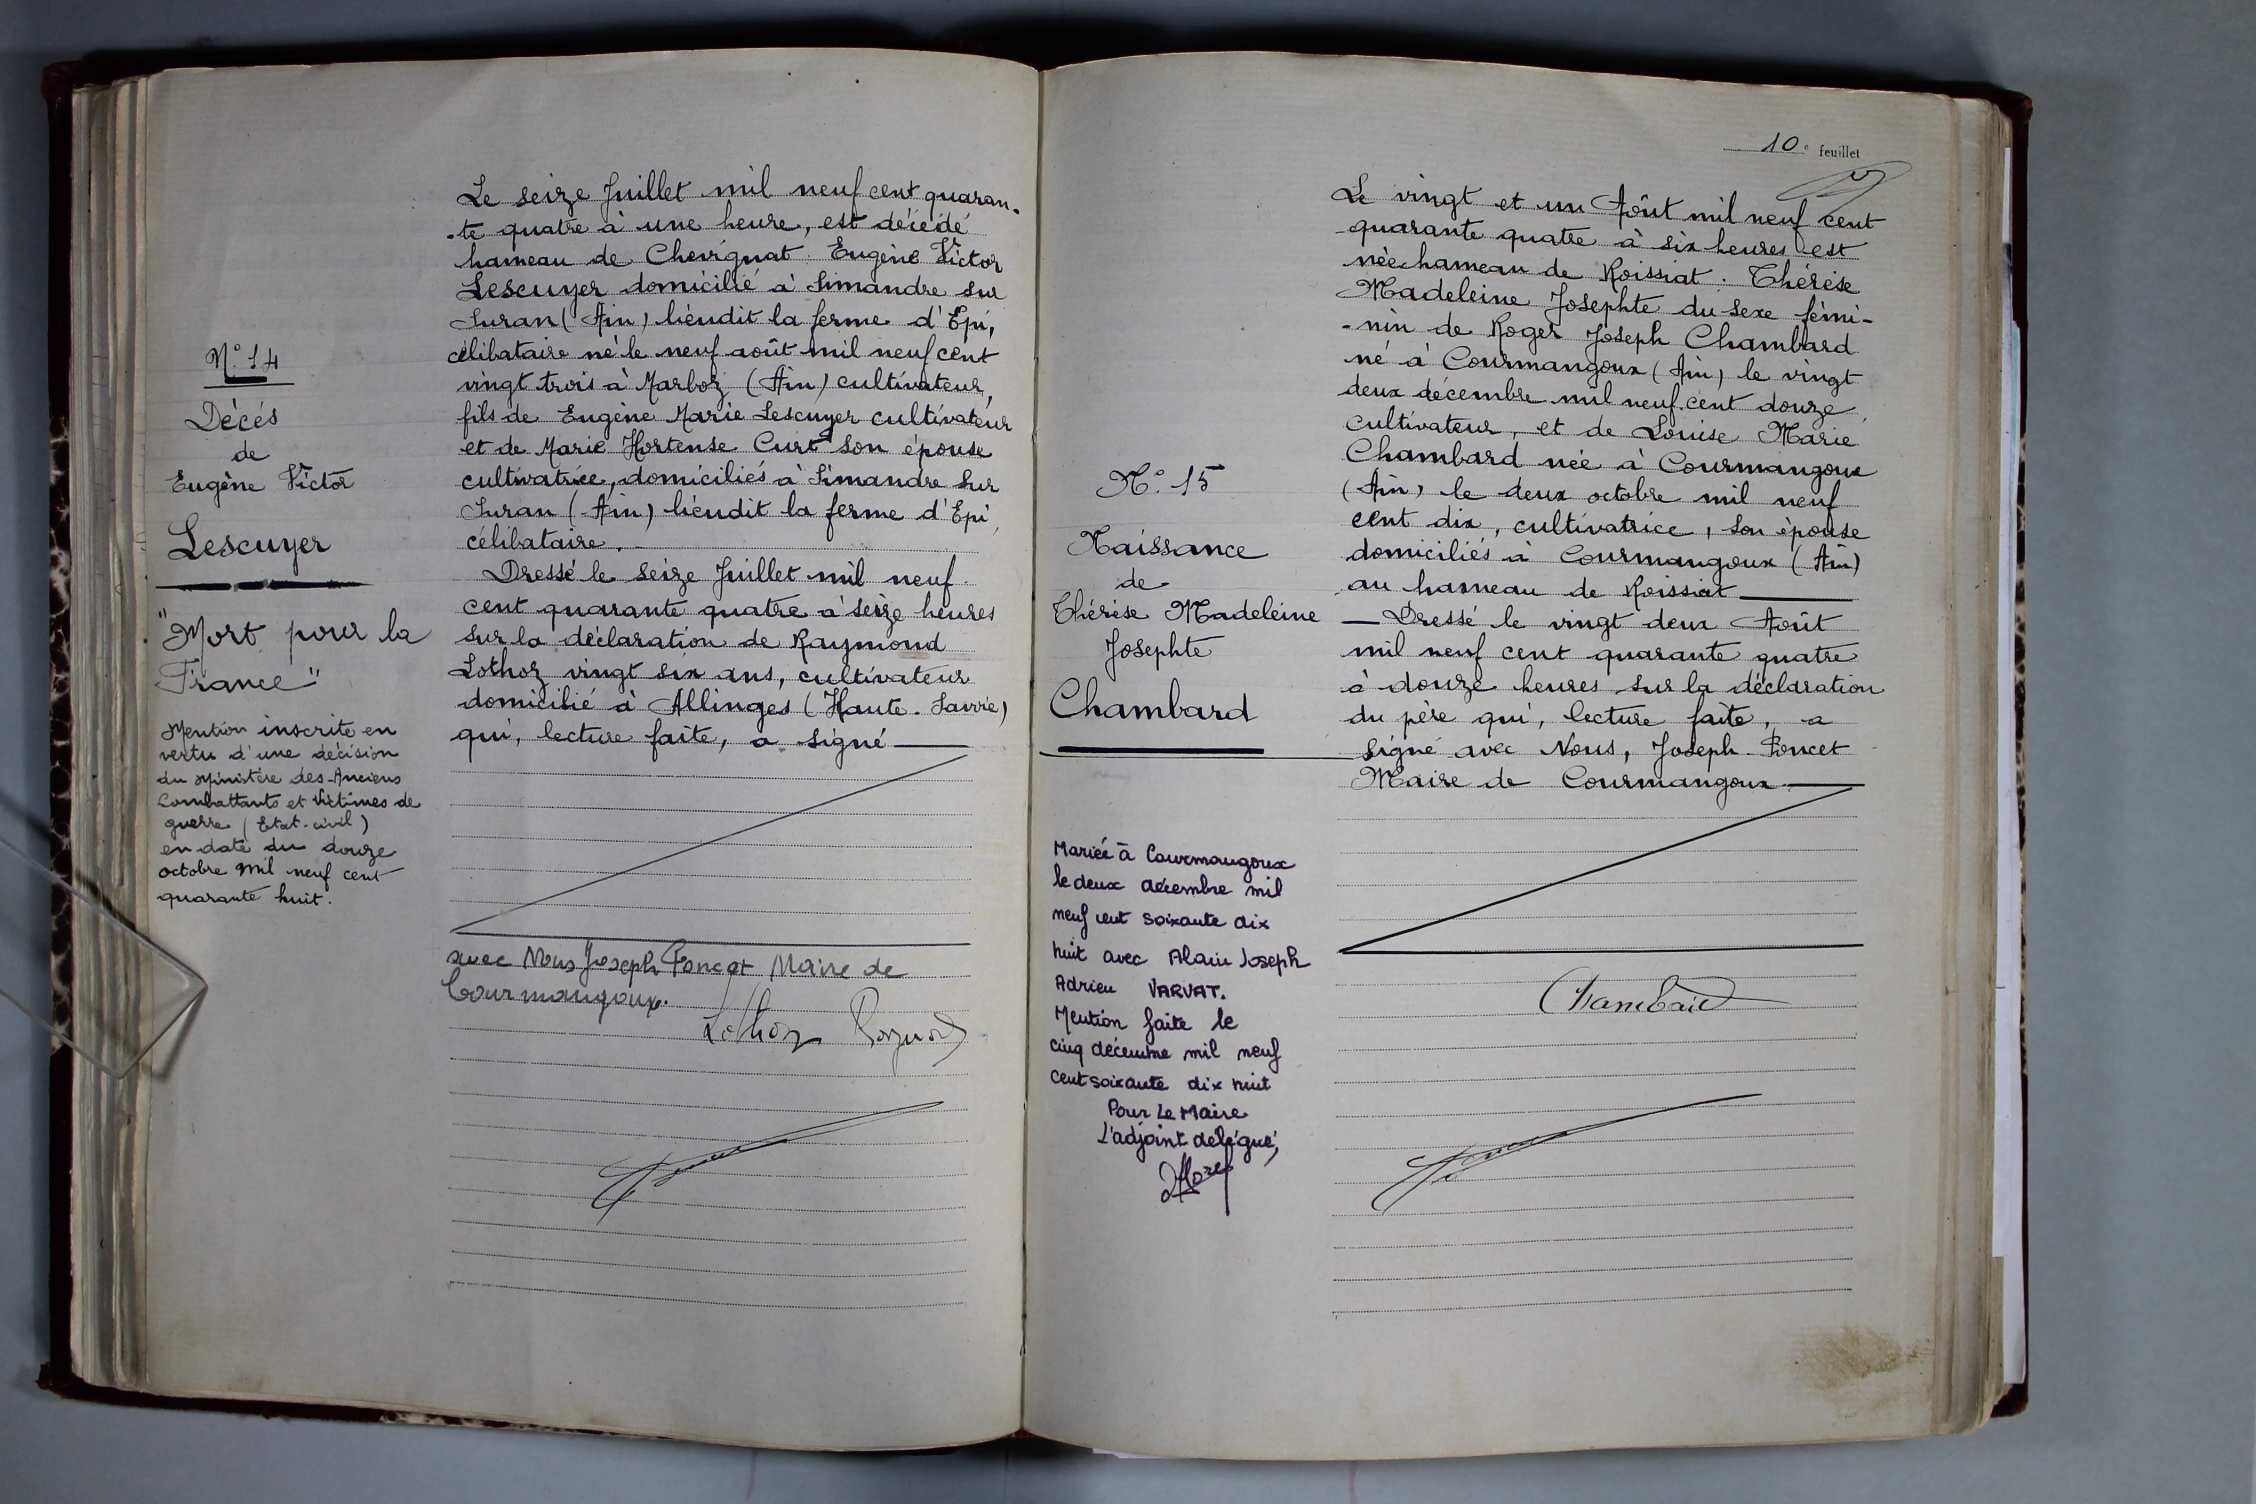 N° 14
Décès
de
Eugène Victor
Lescuyer
"Mort pour la
France"
Mention inscrite en
vertu d'une décision
du Ministère des Anciens
Combattants et Victimes de
guerre (Etat-civil)
en date du douze
octobre mil neuf cent
quarante huit.
Le seize Juillet mil neuf cent quaran-
-te quatre à une heure, est décédé
hameau de Chevignat. Eugène Victor
Lescuyer domicilié à Simandre sur
Suran (Ain) liéudit la ferme d'Epi,
célibataire né le neuf août mil neuf cent
vingt trois à Marboz (Ain) cultivateur,
fils de Eugène Marie Lescuyer cultivateur
et de Marie Hortense Curt son épouse
cultivatrice, domiciliés à Simandre sur
Suran (Ain) liéudit la ferme d'Epi,
célibataire.
Dressé le seize Juillet mil neuf
cent quarante quatre à seize heures
sur la déclaration de Raymond
Lothoz vingt six ans, cultivateur
domicilié à Allinges (Haute-Savoie)
qui, lecture faite, a signé
avec Nous Joseph Poncet Maire de
Courmangoux.
Lothoz
10e feuillet
N° 15
Naissance
de
Thérèse Madeleine
Josephte
Chambard
Mariée à Courmangoux
le deux décembre mil
neuf cent soixante dix
huit avec Alain Joseph
Adrien VARVAT.
Mention faite le
cinq décembre mil neuf
cent soixante dix huit
Pour Le Maire
L'adjoint délégué,
Le vingt et un Août mil neuf cent
quarante quatre à six heures est
née hameau de Roissiat. Thérèse
Madeleine Josephte du sexe fémi-
-nin de Roger Joseph Chambard
né à Courmangoux (Ain) le vingt
deux décembre mil neuf cent douze
cultivateur, et de Louise Marie
Chambard née à Courmangoux
(Ain) le deux octobre mil neuf
cent dix, cultivatrice, son épouse
domiciliés à Courmangoux (Ain)
au hameau de Roissiat
Dressé le vingt deux Août
mil neuf cent quarante quatre
à douze heures sur la déclaration
du père qui, lecture faite, a
signé avec Nous, Joseph Poncet
Maire de Courmangoux.
Chambard